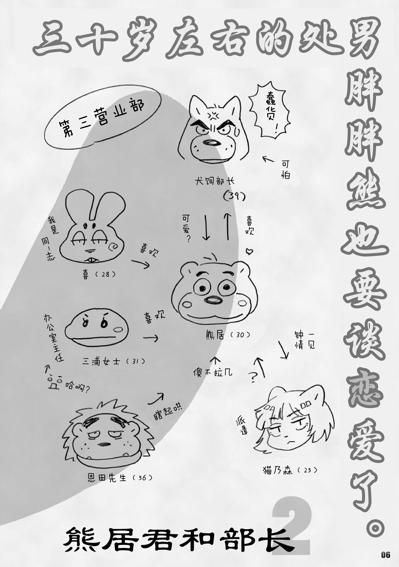 三十岁左右的处男
胖胖熊也要谈恋爱了。
第三营业部
蠢货！
可怕
犬饲部长
(39)
可爱？
喜欢
我是同！志
喜欢
喜（28）
熊居（30）
办公室主任
喜欢
三浦女士（31）
哈啊？
傻不拉几
一见钟情
？
瞎起哄
派遣
恩田先生（36）
猫乃森（23）
熊居君和部长
2
06